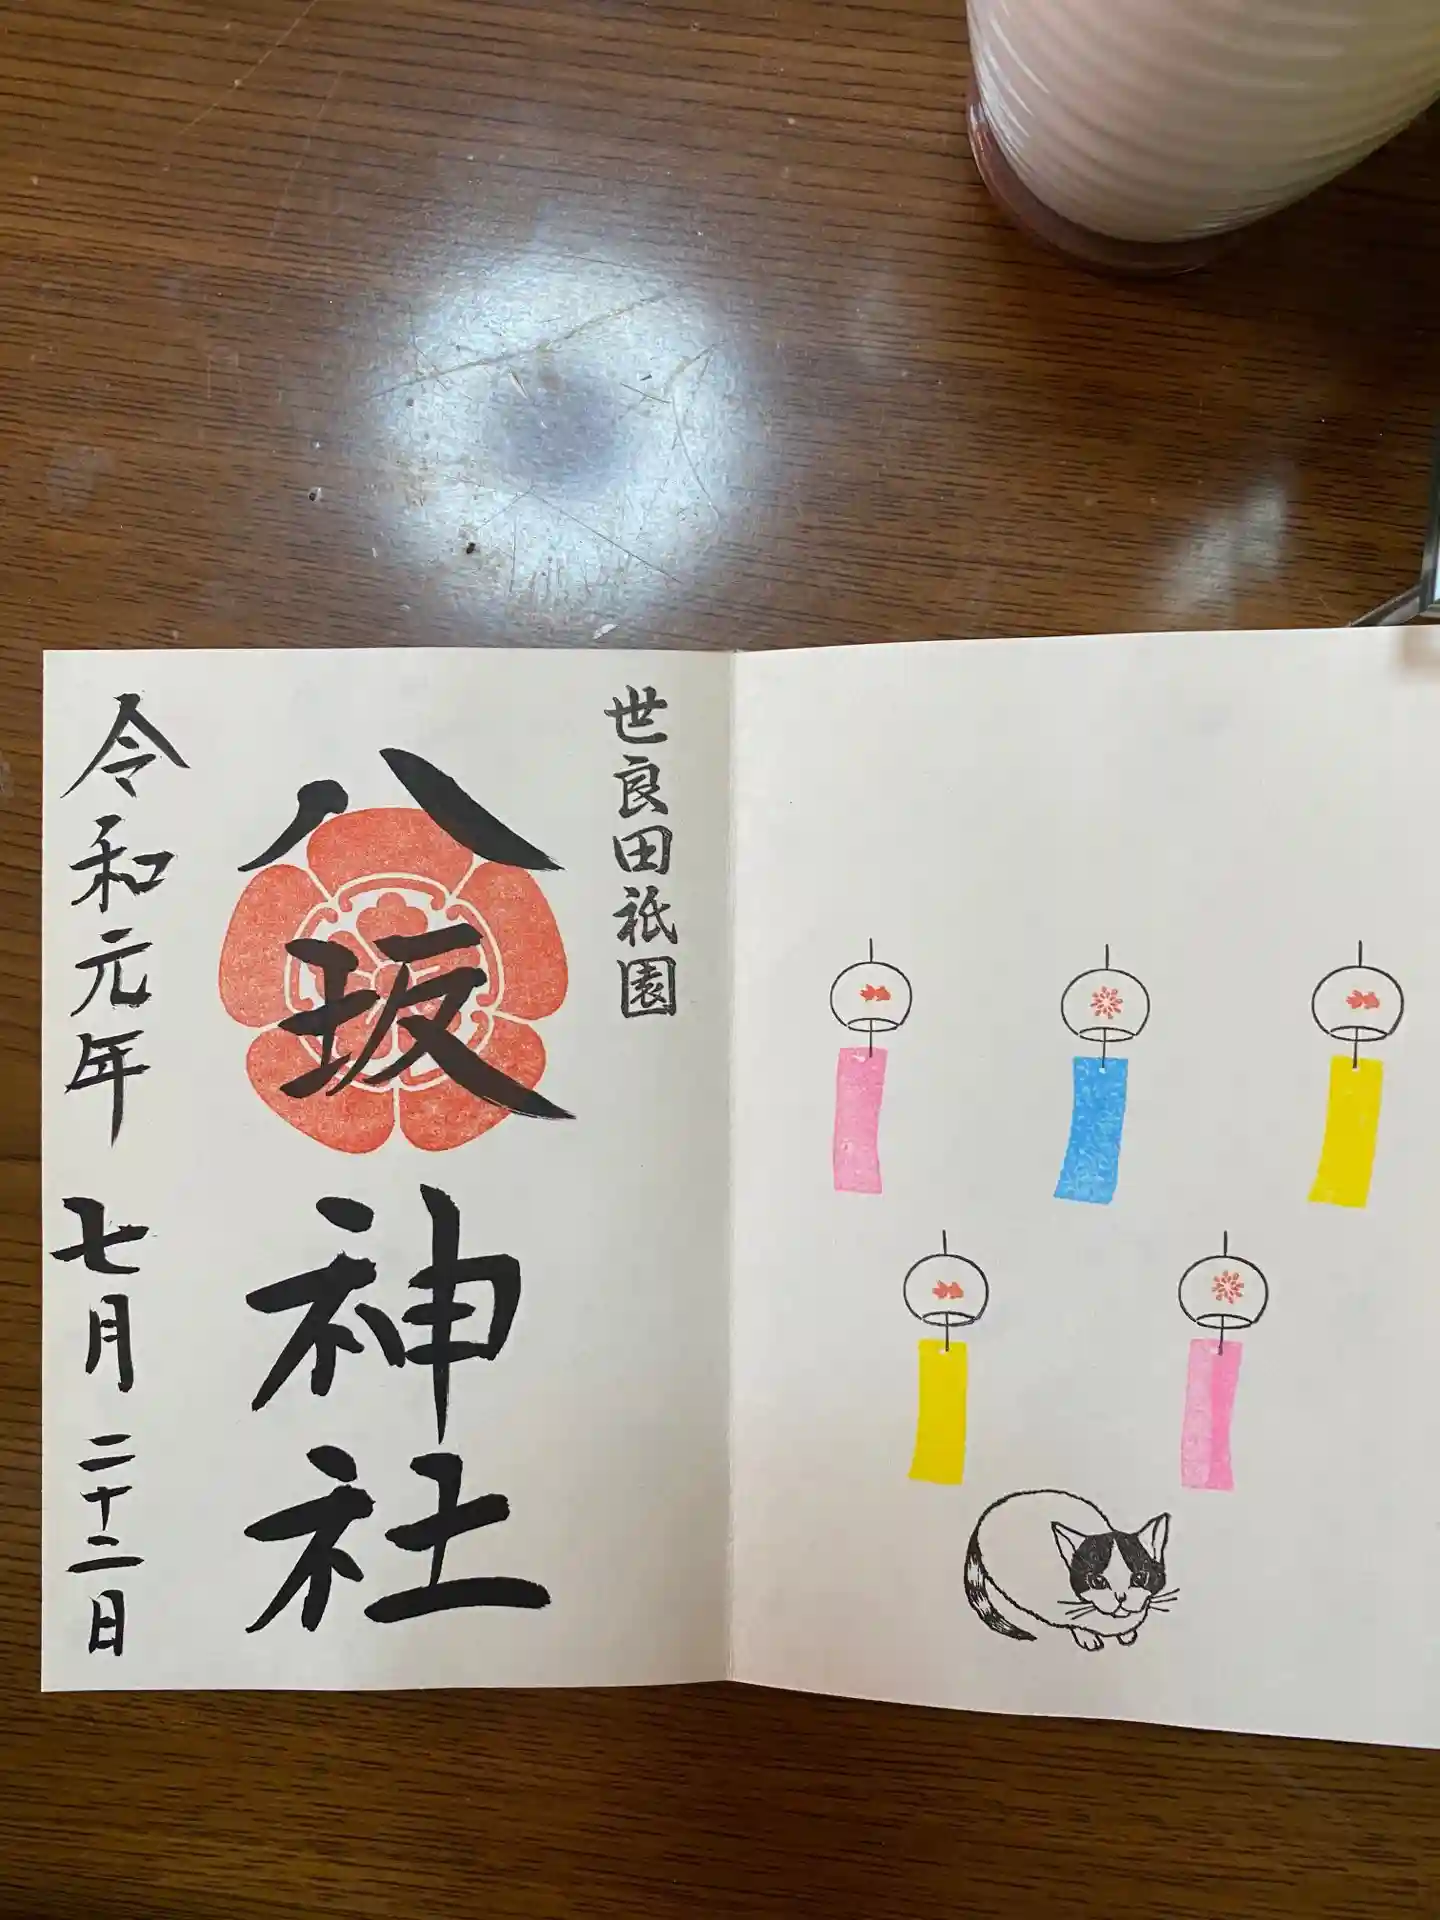 世良田祇園
八坂神社
令和元年 七月 二十二日